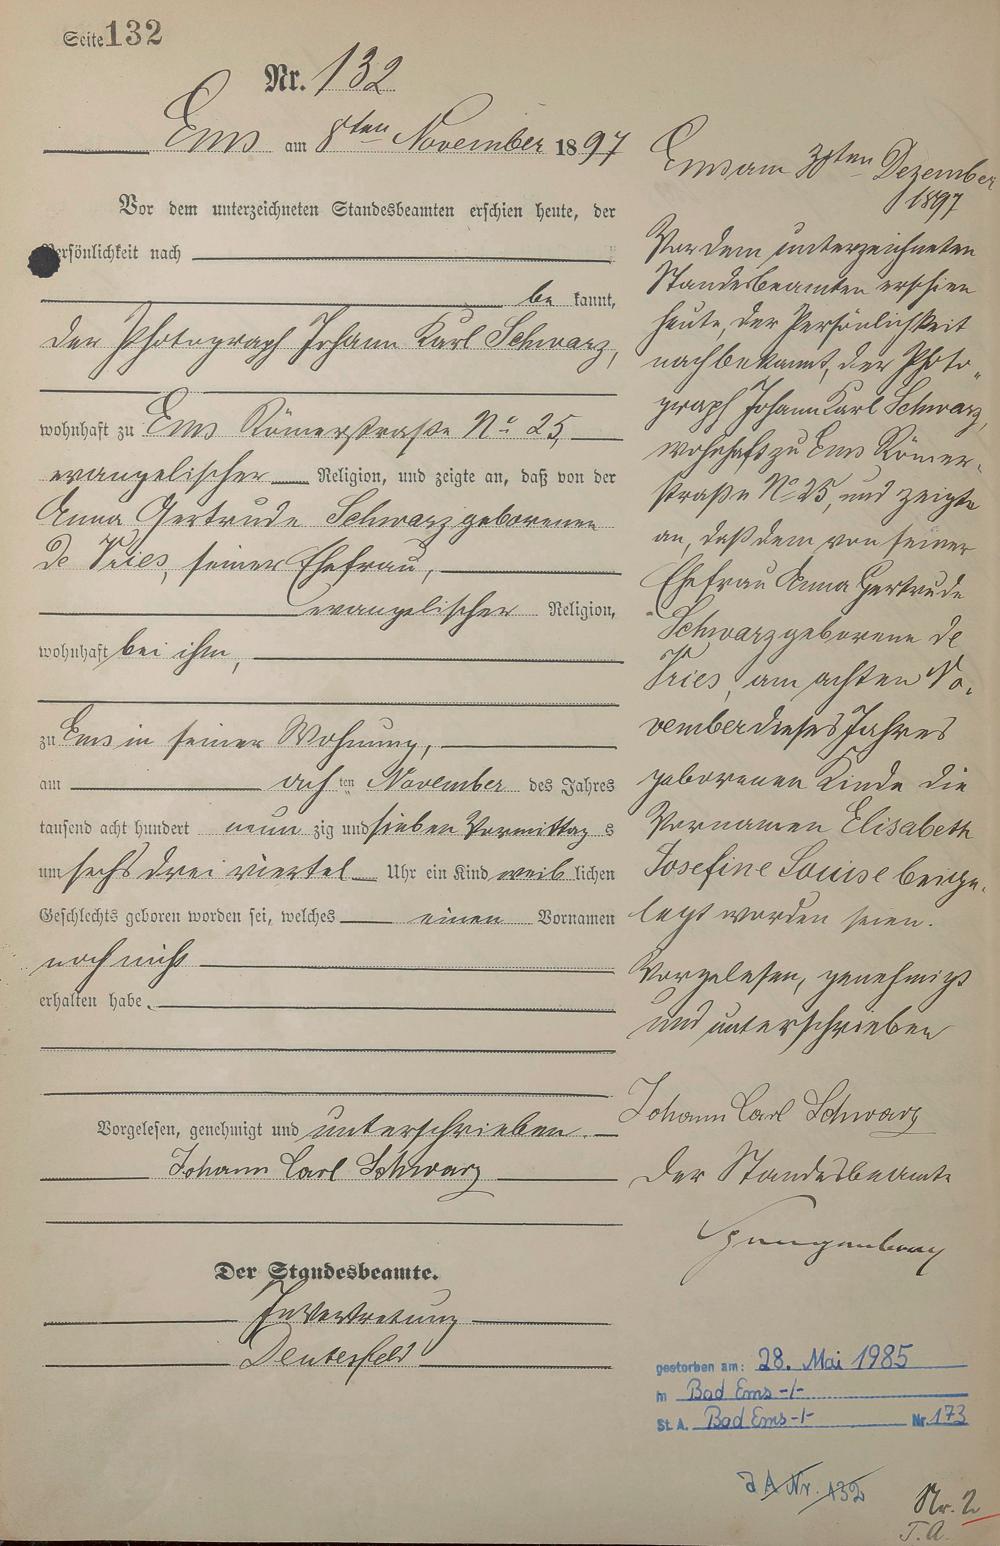 Seite 132
Nr. 132
Ems am 8ten November 1897
Vor dem unterzeichneten Standesbeamten erschien heute, der
Persönlichkeit nach
be kannt,
der Photograph Johann Karl Schwarz,
wohnhaft zu Ems Römerstraße No 25,
evangelischer Religion, und zeigte an, daß von der
Anna Gertrude Schwarz geborenen
de Vries, seiner Ehefrau,
evangelischer Religion,
wohnhaft bei ihm,
zu Ems in seiner Wohnung,
am acht ten November des Jahres
tausend acht hundert neun zig und sieben Vormittag s
um sechs drei viertel Uhr ein Kind weib lichen
Geschlechts geboren worden sei, welches einen Vornamen
noch nicht
erhalten habe.
Vorgelesen, genehmigt und unterschrieben.
Johann Carl Schwarz
Der Standesbeamte.
In Vertretung
Ems am ten Dezember
1897
Vor dem unterzeichneten
Standesbeamten erschien
heute, der Persönlichkeit
nach bekannt, der Photo-
graph Johann Karl Schwarz,
wohnhaft zu Ems Römer-
straße No 25, und zeigte
an, daß dem von seiner
Ehefrau Anna Gertrude
Schwarz geborene de
Vries, am achten No-
vember dieses Jahres
geborenen Kinde die
Vornamen Elisabeth
Josefine Louise beige-
legt worden seien.
Vorgelesen, genehmigt
und unterschrieben
Johann Carl Schwarz
Der Standesbeamte
gestorben am: 28. Mai 1985
in Bad Ems -/-
St.A. Bad Ems -/- Nr. 173
A Nr. 132
Nr. 2
T. A.